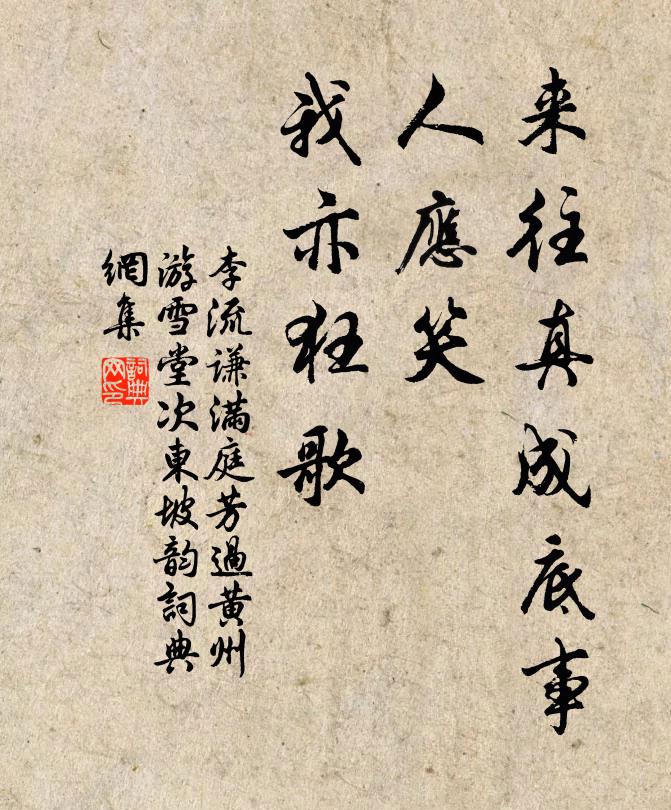 来往真成底事
人應笑
我亦狂歌
李流谦满庭芳過黄州
游雪堂次東坡韵詞典
網集
詞典
网印